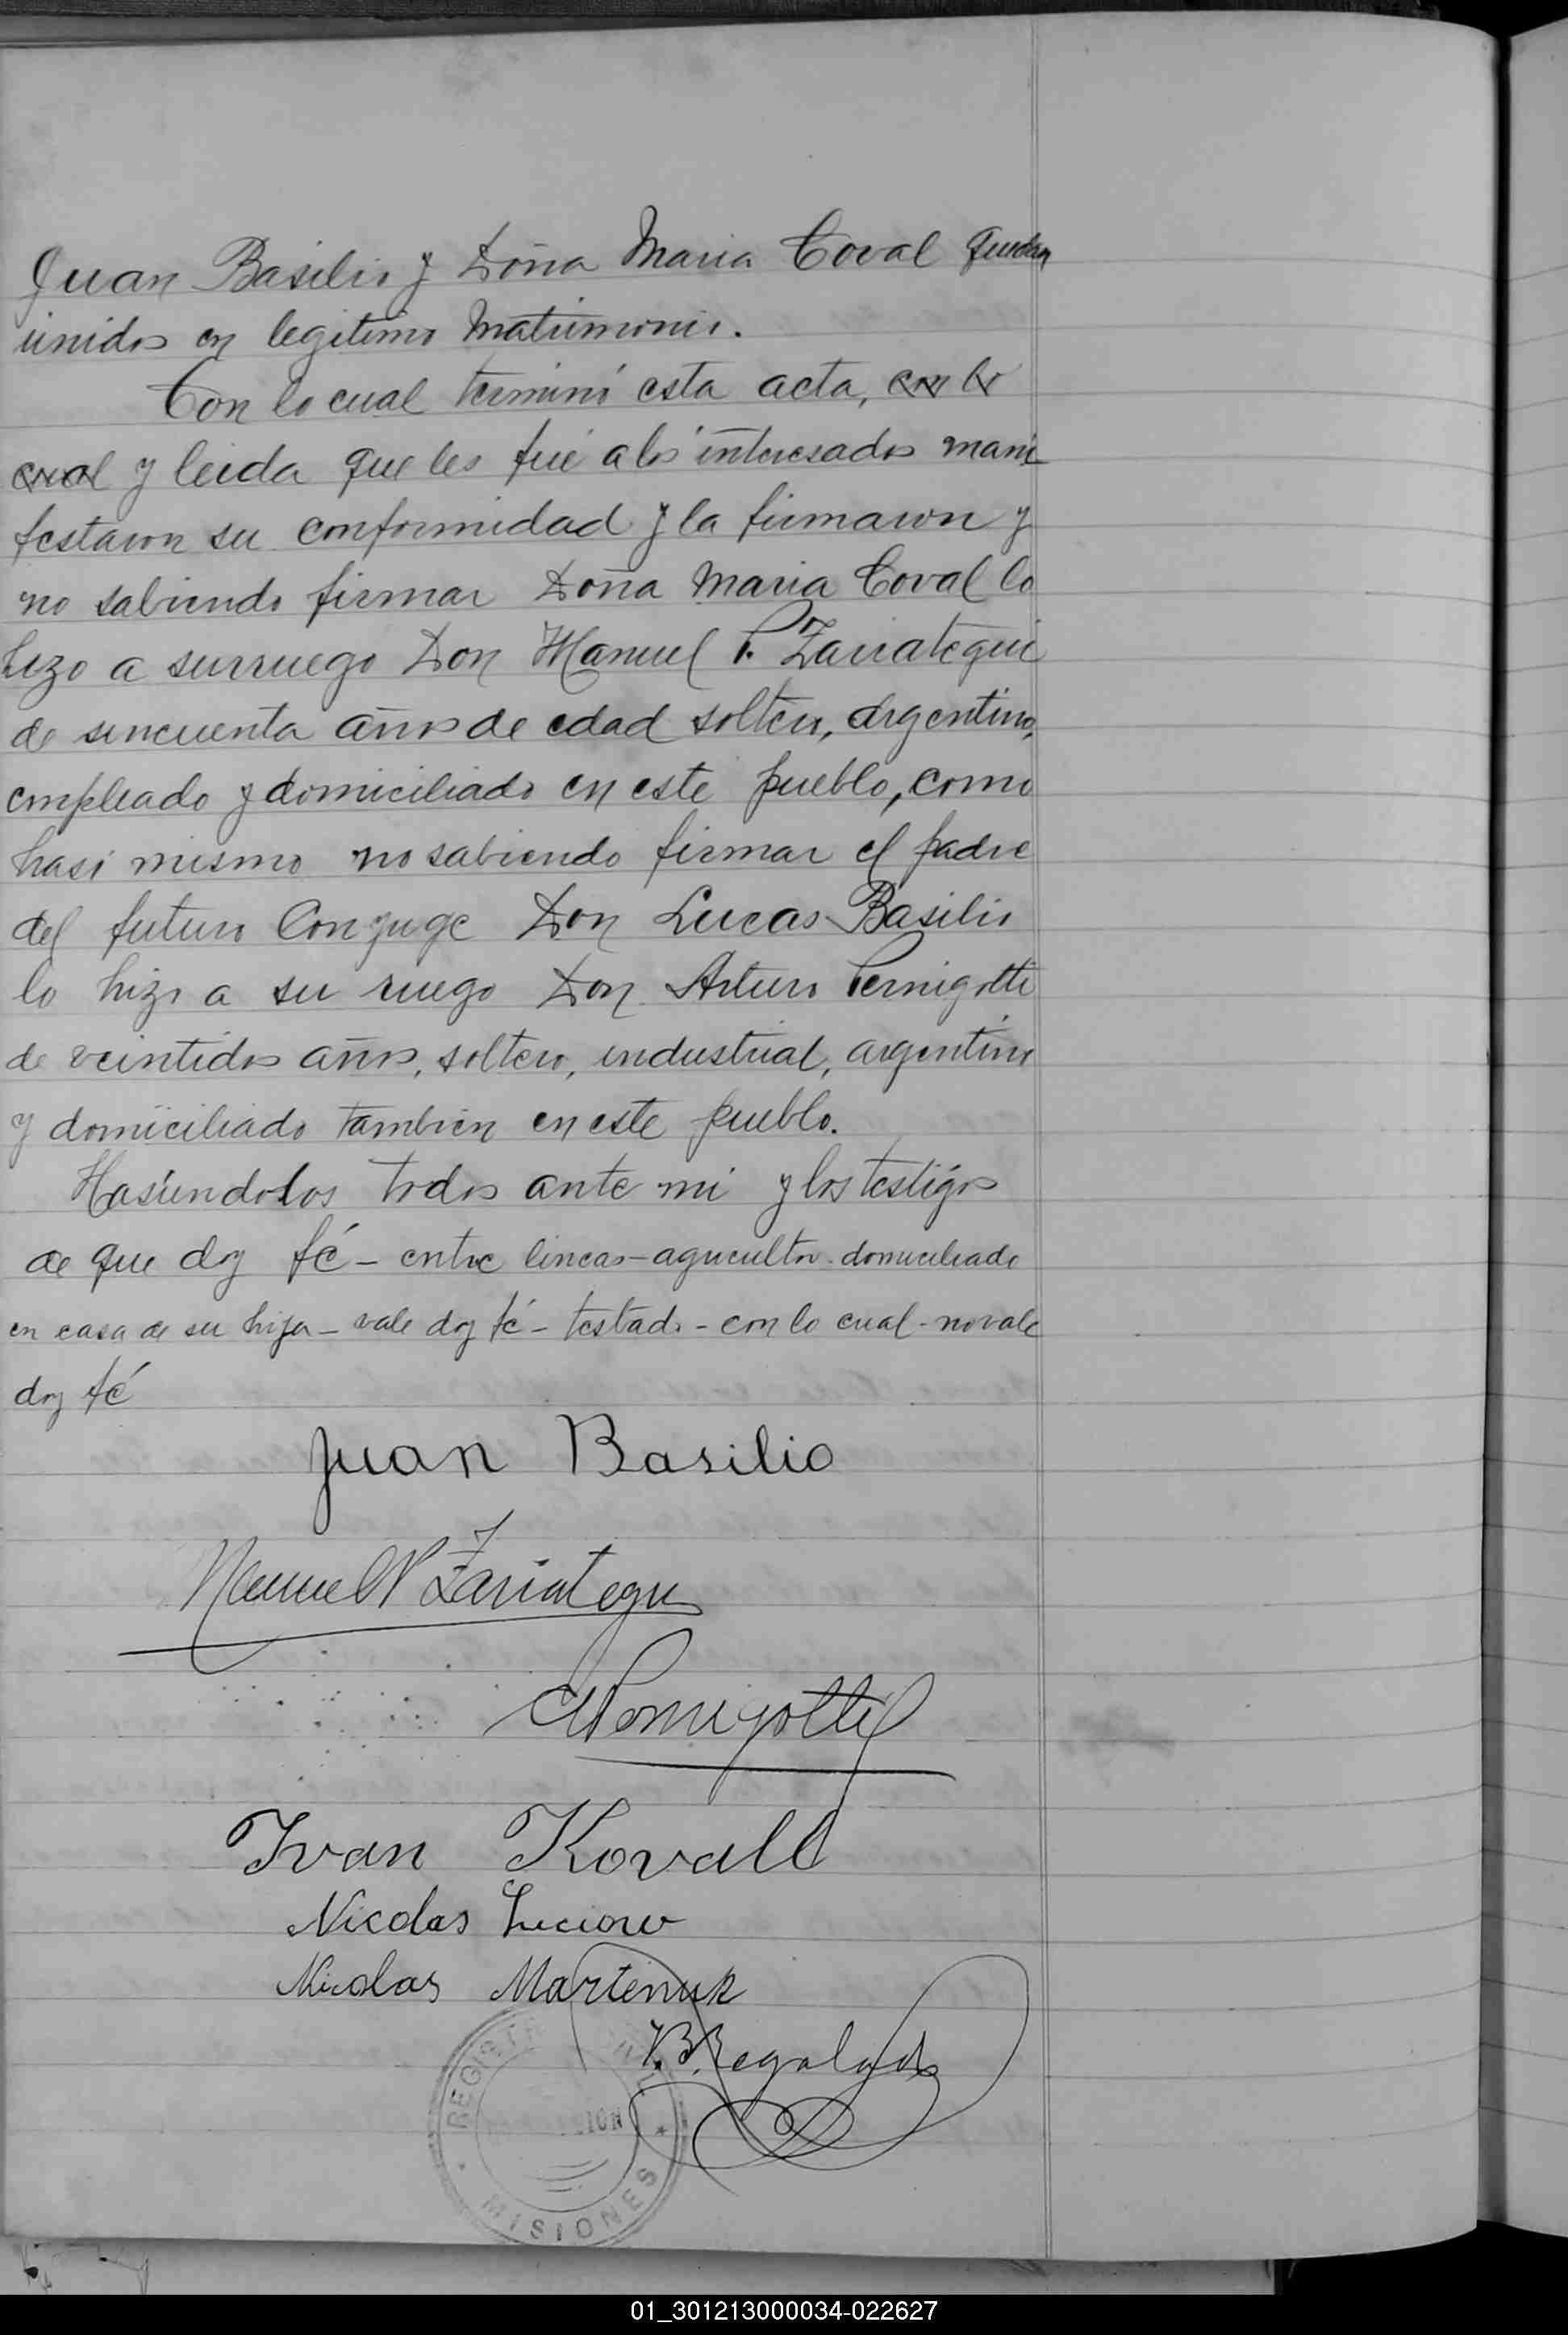 Juan Basilio y Doña Maria Coval quedan
unidos en legitimo Matrimonio.
Con lo cual terminó esta acta, con lo
cual y leida que les fué a los interesados mani
festaron su conformidad y la firmaron y
no sabiendo firmar Doña Maria Coval lo
hizo a surruego Don Manuel P. Zarrategui
de sincuenta años de edad soltero, Argentino,
empleado y domiciliado en este pueblo, como
hasi mismo no sabiendo firmar el padre
del futuro Conyuge Don Lucas Basilio
lo hizo a su ruego Don Arturo Pernigotti
de veintidos años, soltero, industrial, argentino
y domiciliado tambien en este pueblo.
Hasiendolos todos ante mi y los testigos
de que doy fé - entre lineas - agricultor - domiciliado
en casa de su hija - vale doy fé - testado - con lo cual - no vale
doy fé
Juan Basilio
Manuel P Zarrategui
A Pernigotti
Ivan Kovall
Nicolas
Nicolas Martenuk
B. Regalado
REGISTR
MISIONES
01_301213000034-022627